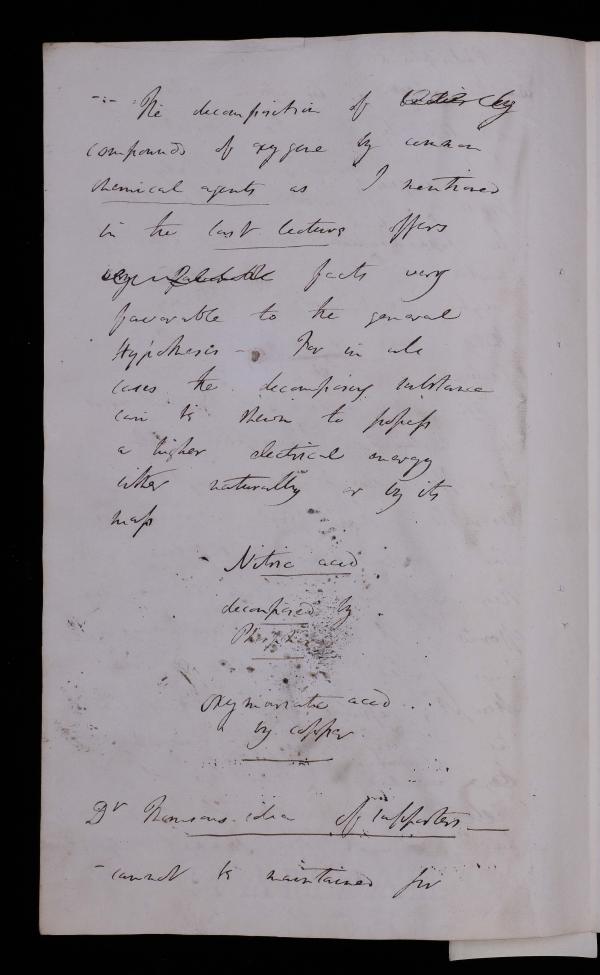 -:- The decomposition of
compounds of oxygene by common
chemical agents as I mentioned
in the last lecture offers
facts very
favorable to the general
Hypothesis - For in all
cases the decomposing substance
can be shewn to possess
a higher electrical energy
either naturally or by its
mass
Nitric acid
decomposed by
oxymuriatic acid ..
by copper
Dr Thomsons idea of supporters —
- cannot be maintained for